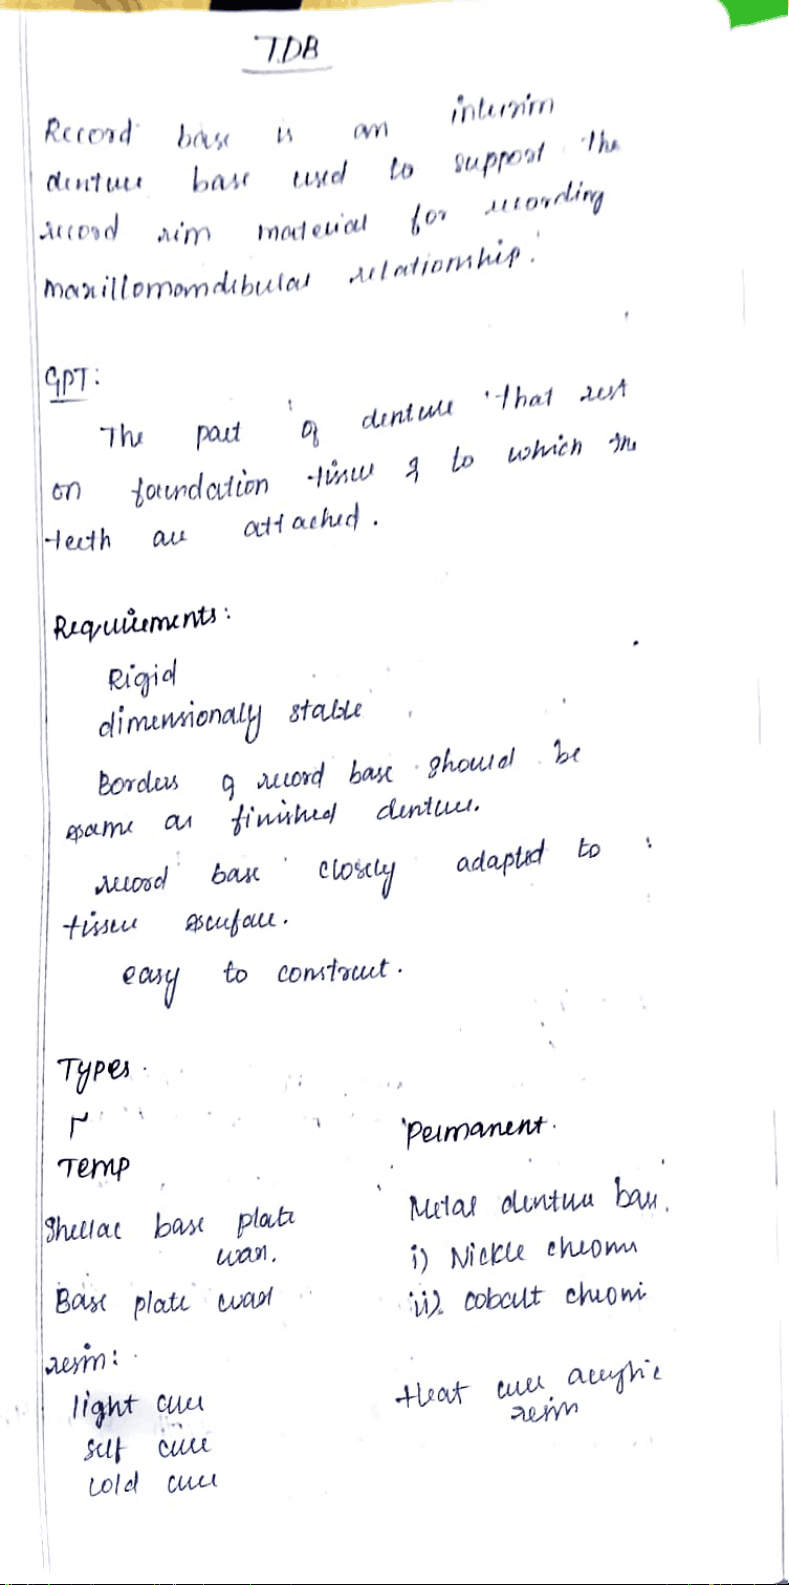 TDB
Record base is an interim
denture base used to support the
record rim material for recording
maxillomandibular relationship.
GPT:
The part of denture that rest
on foundation tissue & to which the
teeth are attached.
Requirements:
Rigid
dimensionaly stable
Borders of record base should be
same as finished denture.
record base closely adapted to
tissue surface.
easy to construct.
Types
Temp
Permanent.
Shellac base plate
wax.
Base plate wax
resin:
light cure
self cure
cold cure
Metal denture base.
i) Nickle chrome
ii) cobalt chromi
Heat cure acrylic
resin